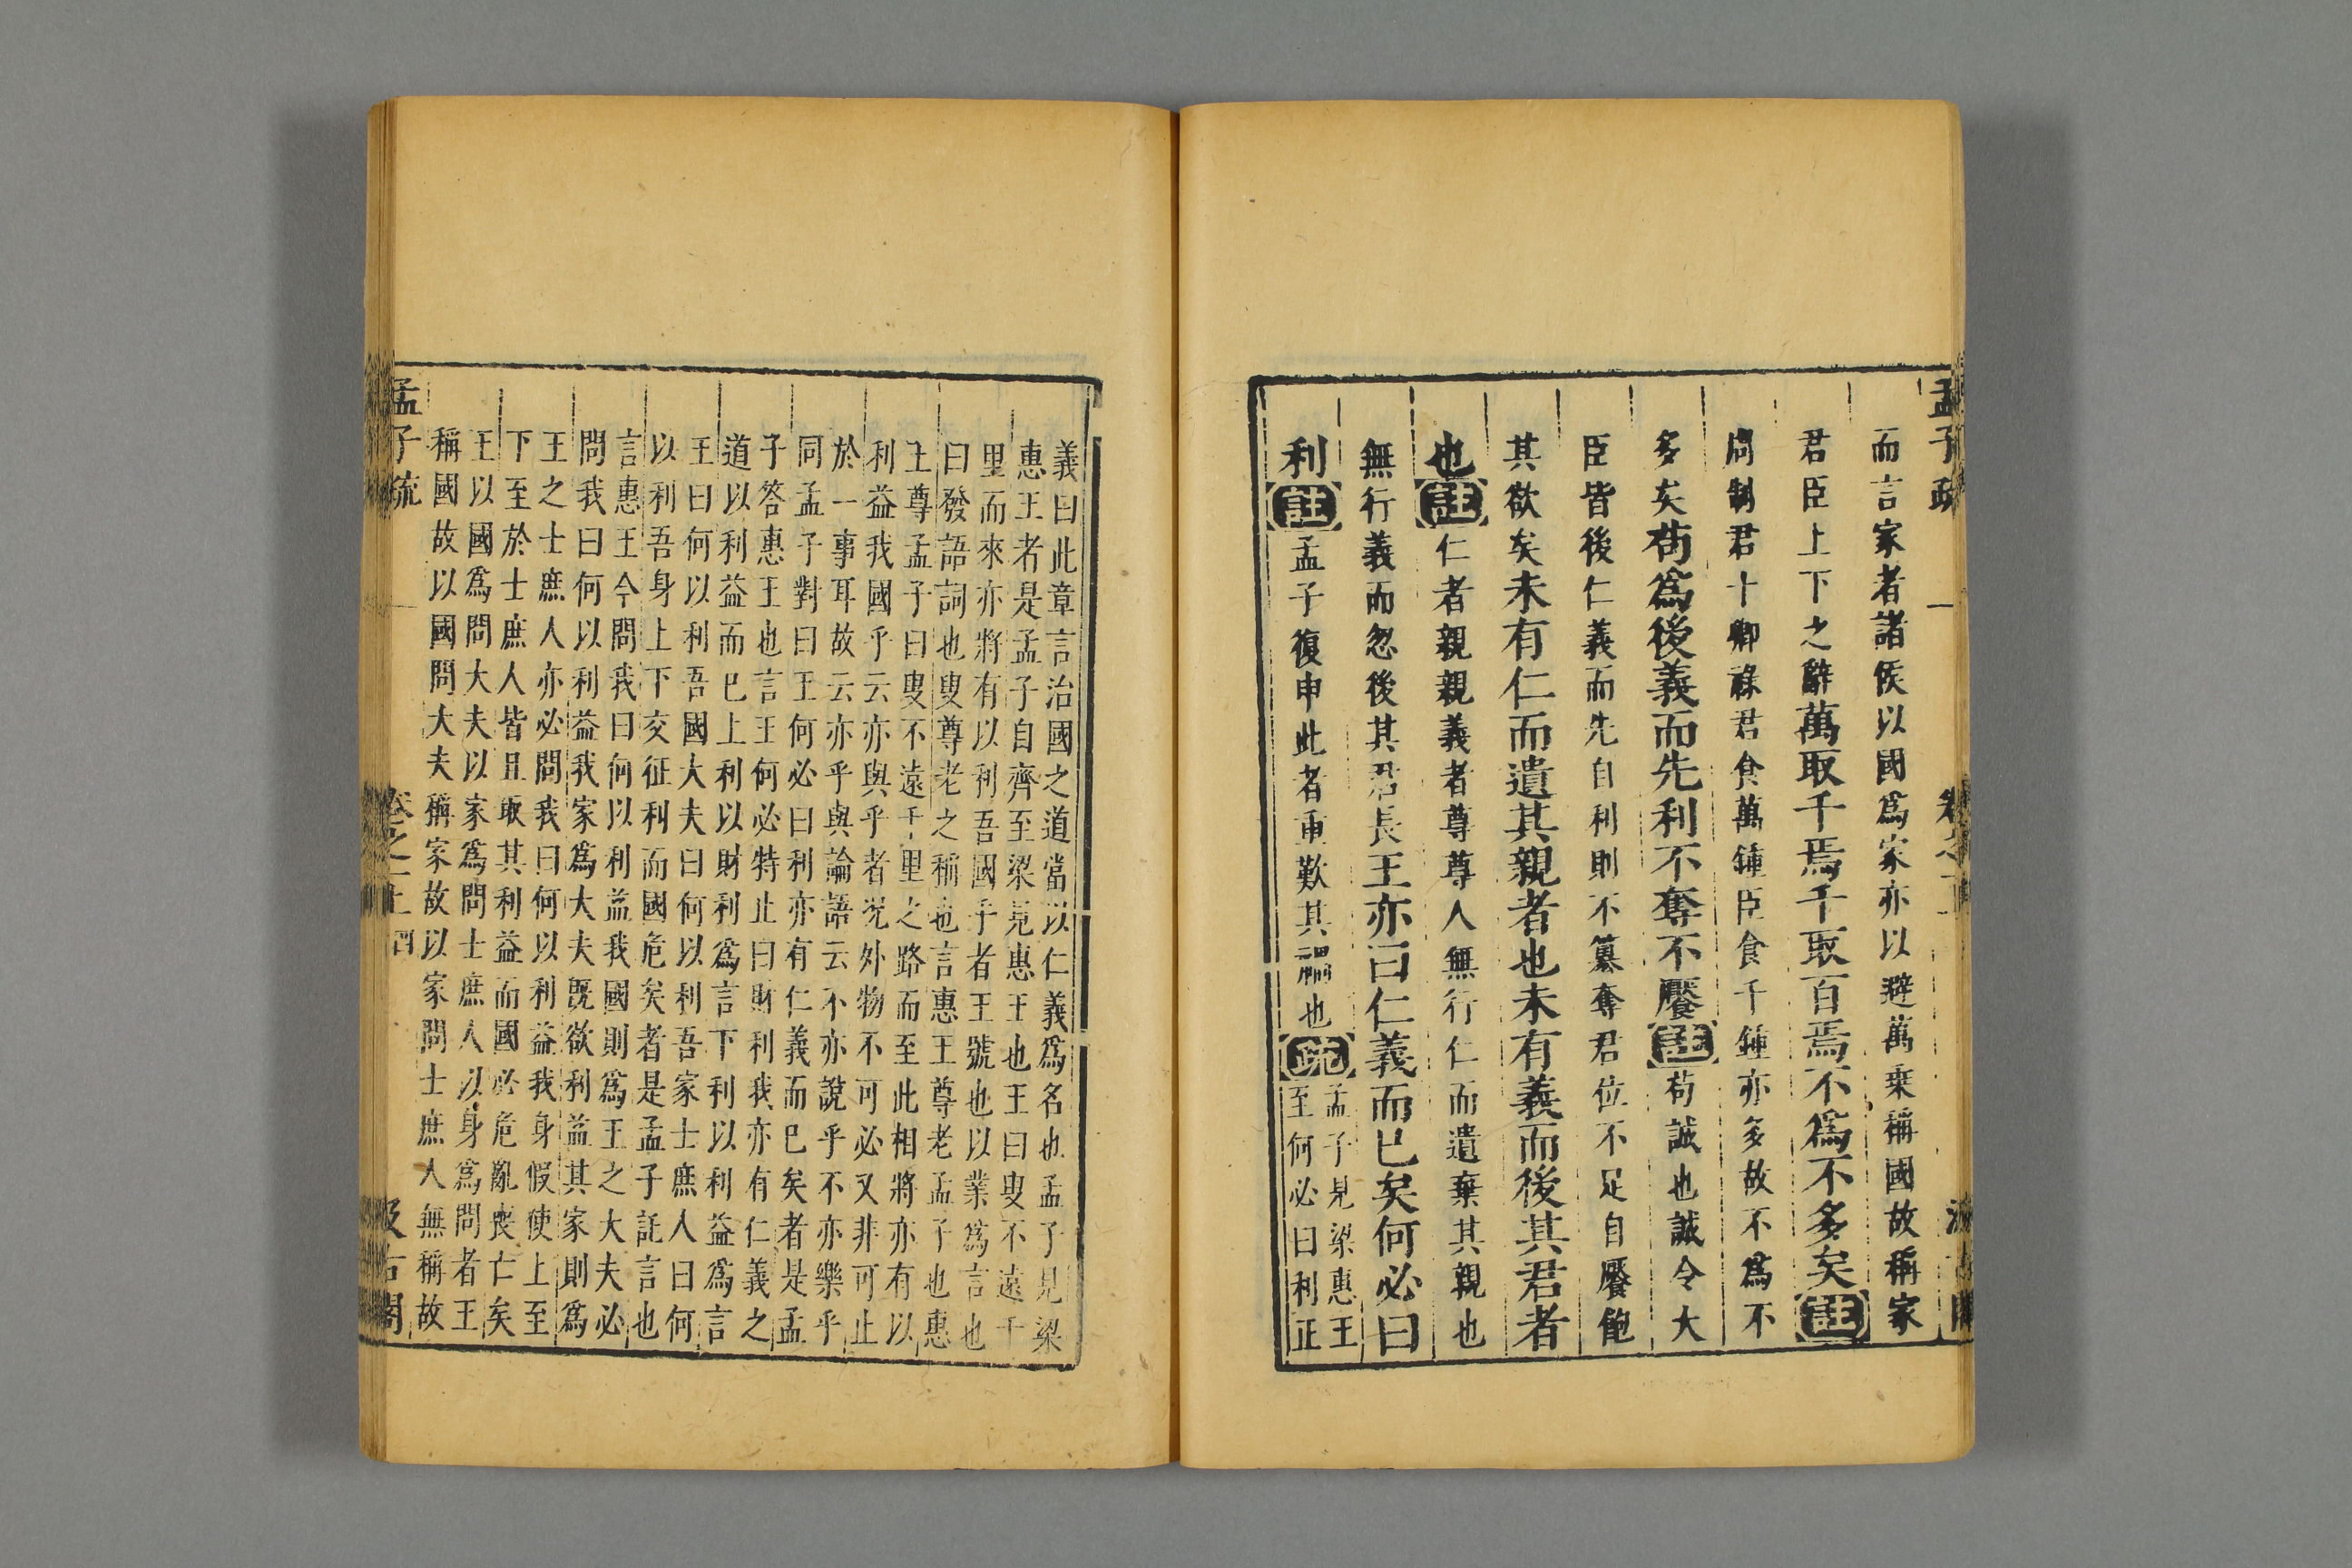 而言家者諸侯以國爲家亦以避萬乗稱國故稱家
君臣上下之辭萬取千焉千取百焉不爲不多矣註
周制君十卿祿君食萬鍾臣食千鍾亦多故不爲不
多矣苟爲後義而先利不奪不饜註苟誠也誠令大
臣皆後仁義而先自利則不篡奪君位不足自饜飽
其欲矣未有仁而遺其親者也未有義而後其君者
也註仁者親親義者尊尊人無行仁而遺棄其親也
無行義而忽後其君長王亦曰仁義而已矣何必曰
利註孟子復申此者重歎其禍也疏孟子見梁惠王
至何必曰利正
義曰此章言治國之道當以仁義爲名也孟子見梁
惠王者是孟子自齊至梁見惠王也王曰叟不遠千
里而來亦將有以利吾國乎者王號也以業爲言也
曰發語詞也叟尊老之稱也言惠王尊老孟子也惠
王尊孟子曰叟不遠千里之路而至此相將亦有以
利益我國乎云亦與乎者况外物不可必又非可止
於一事耳故云亦乎與論語云不亦說乎不亦樂乎
同孟子對曰王何必曰利亦有仁義而已矣者是孟
子答惠王也言王何必特止曰財利我亦有仁義之
道以利益而已上利以財利爲言下利以利益爲言
王曰何以利吾國大夫曰何以利吾家士庶人曰何
以利吾身上下交征利而國危矣者是孟子託言也
言惠王今問我曰何以利益我國則爲王之大夫必
問我曰何以利益我家爲大夫旣欲利益其家則爲
王之士庶人亦必問我曰何以利益我身假使上至
下至於士庶人皆且取其利益而國必危亂喪亡矣
王以國爲問大夫以家爲問士庶人以身爲問者王
稱國故以國問大夫稱家故以家問士庶人無稱故
孟子疏 卷之一上 四 汲古閣